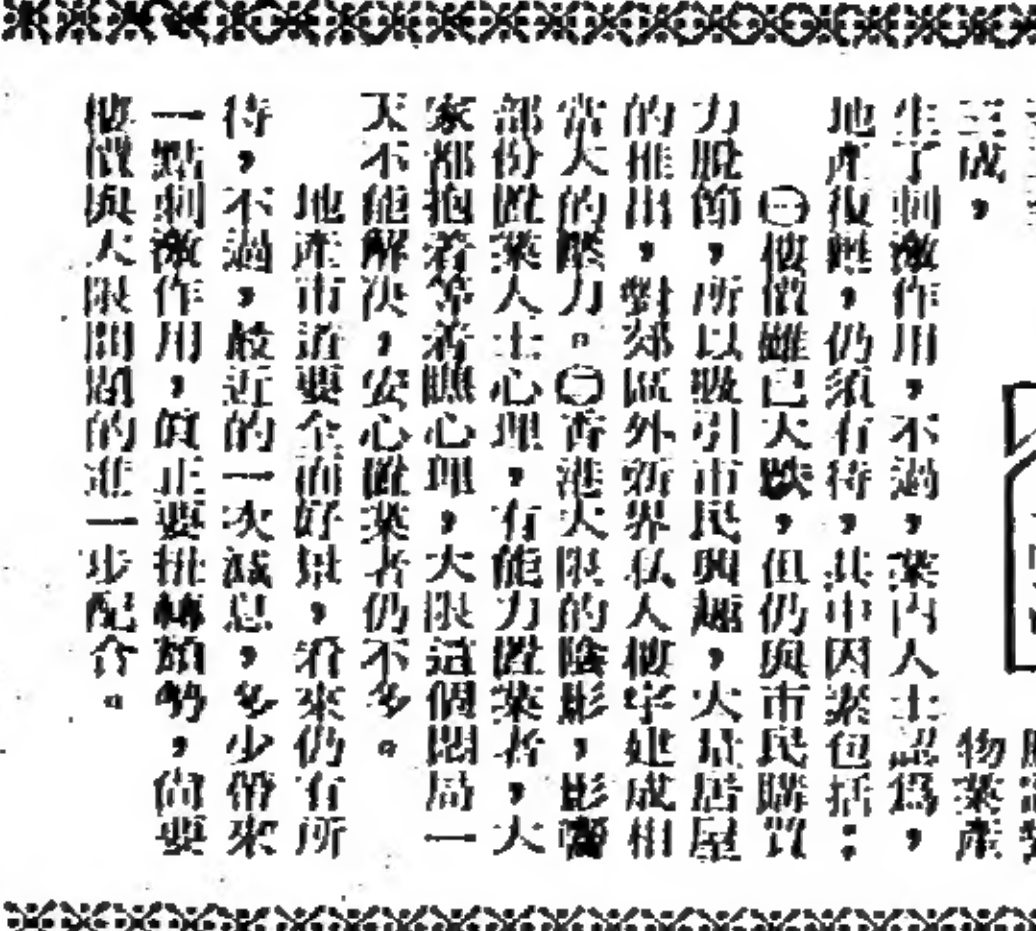 三成，
物業產
生了刺激作用，不過，業內人士認為，
地產復甦，仍須有待，其中因素包括：
㊀樓價雖已大跌，但仍與市民購買
力脫節，所以吸引市民興趣，大量居屋
的推出，對郊區外新界私人樓宇建成相
當大的壓力。㊁香港大限的陰影，影響
部份置業人士心理，有能力置業者，大
家都抱着等着瞧心理，大限這個悶局一
天不能解決，安心置業者仍不多。
地產市道要全面好景，看來仍有所
待，不過，最近的一次減息，多少帶來
一點刺激作用，真正要扭轉頹勢，尚要
樓價與大限問題的進一步配合。